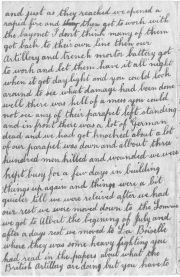 and just as they reached we opened a
rapid fire and then got to work with
the bayonet I don't think many of them
got back to their own line then our
Artillery and trench mortar battery got
to work and let them have it all night
when it got day light and you could look
around to see what damage had been done
well there was hell of a mess you could
not see any of their parapet left standing
and in front there was a lot of German
dead and we had got knocked about a lot
of our parapet was down and about three
hundred men killed and wounded we were
kept busy for a few days in building
things up again and things were a lot
quieter till we were relieved after we had
our rest we were moved down to the Somme
we got to Albert the begining of July and
after a days rest we moved to La Boiselle
where they was some heavy fighting you
had read in the papers about what the
British Artillery are doing but you have to